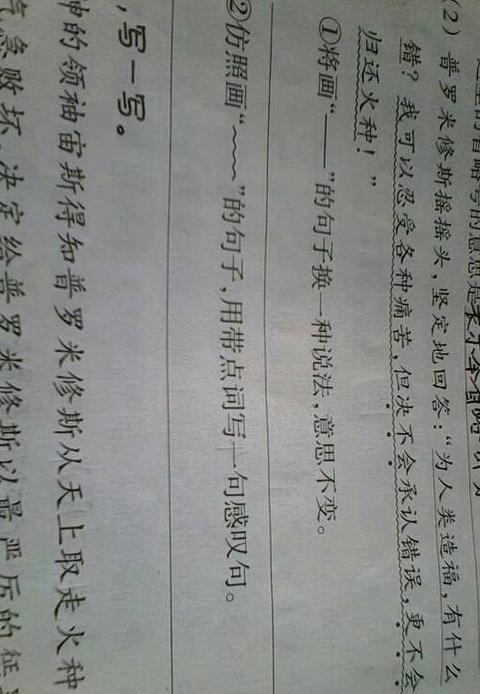 (2) 普罗米修斯摇摇头,坚定地回答:“为人类造福,有什么
错?我可以忍受各种痛苦,但决不会承认错误,更不会
归还火种!”
①将画“——”的句子换一种说法,意思不变。
②仿照画“﹏﹏”的句子,用带点词写一句感叹句。
,写一写。
神的领袖宙斯得知普罗米修斯从天上取走火种
气急败坏,决定给普罗米修斯以最严厉的